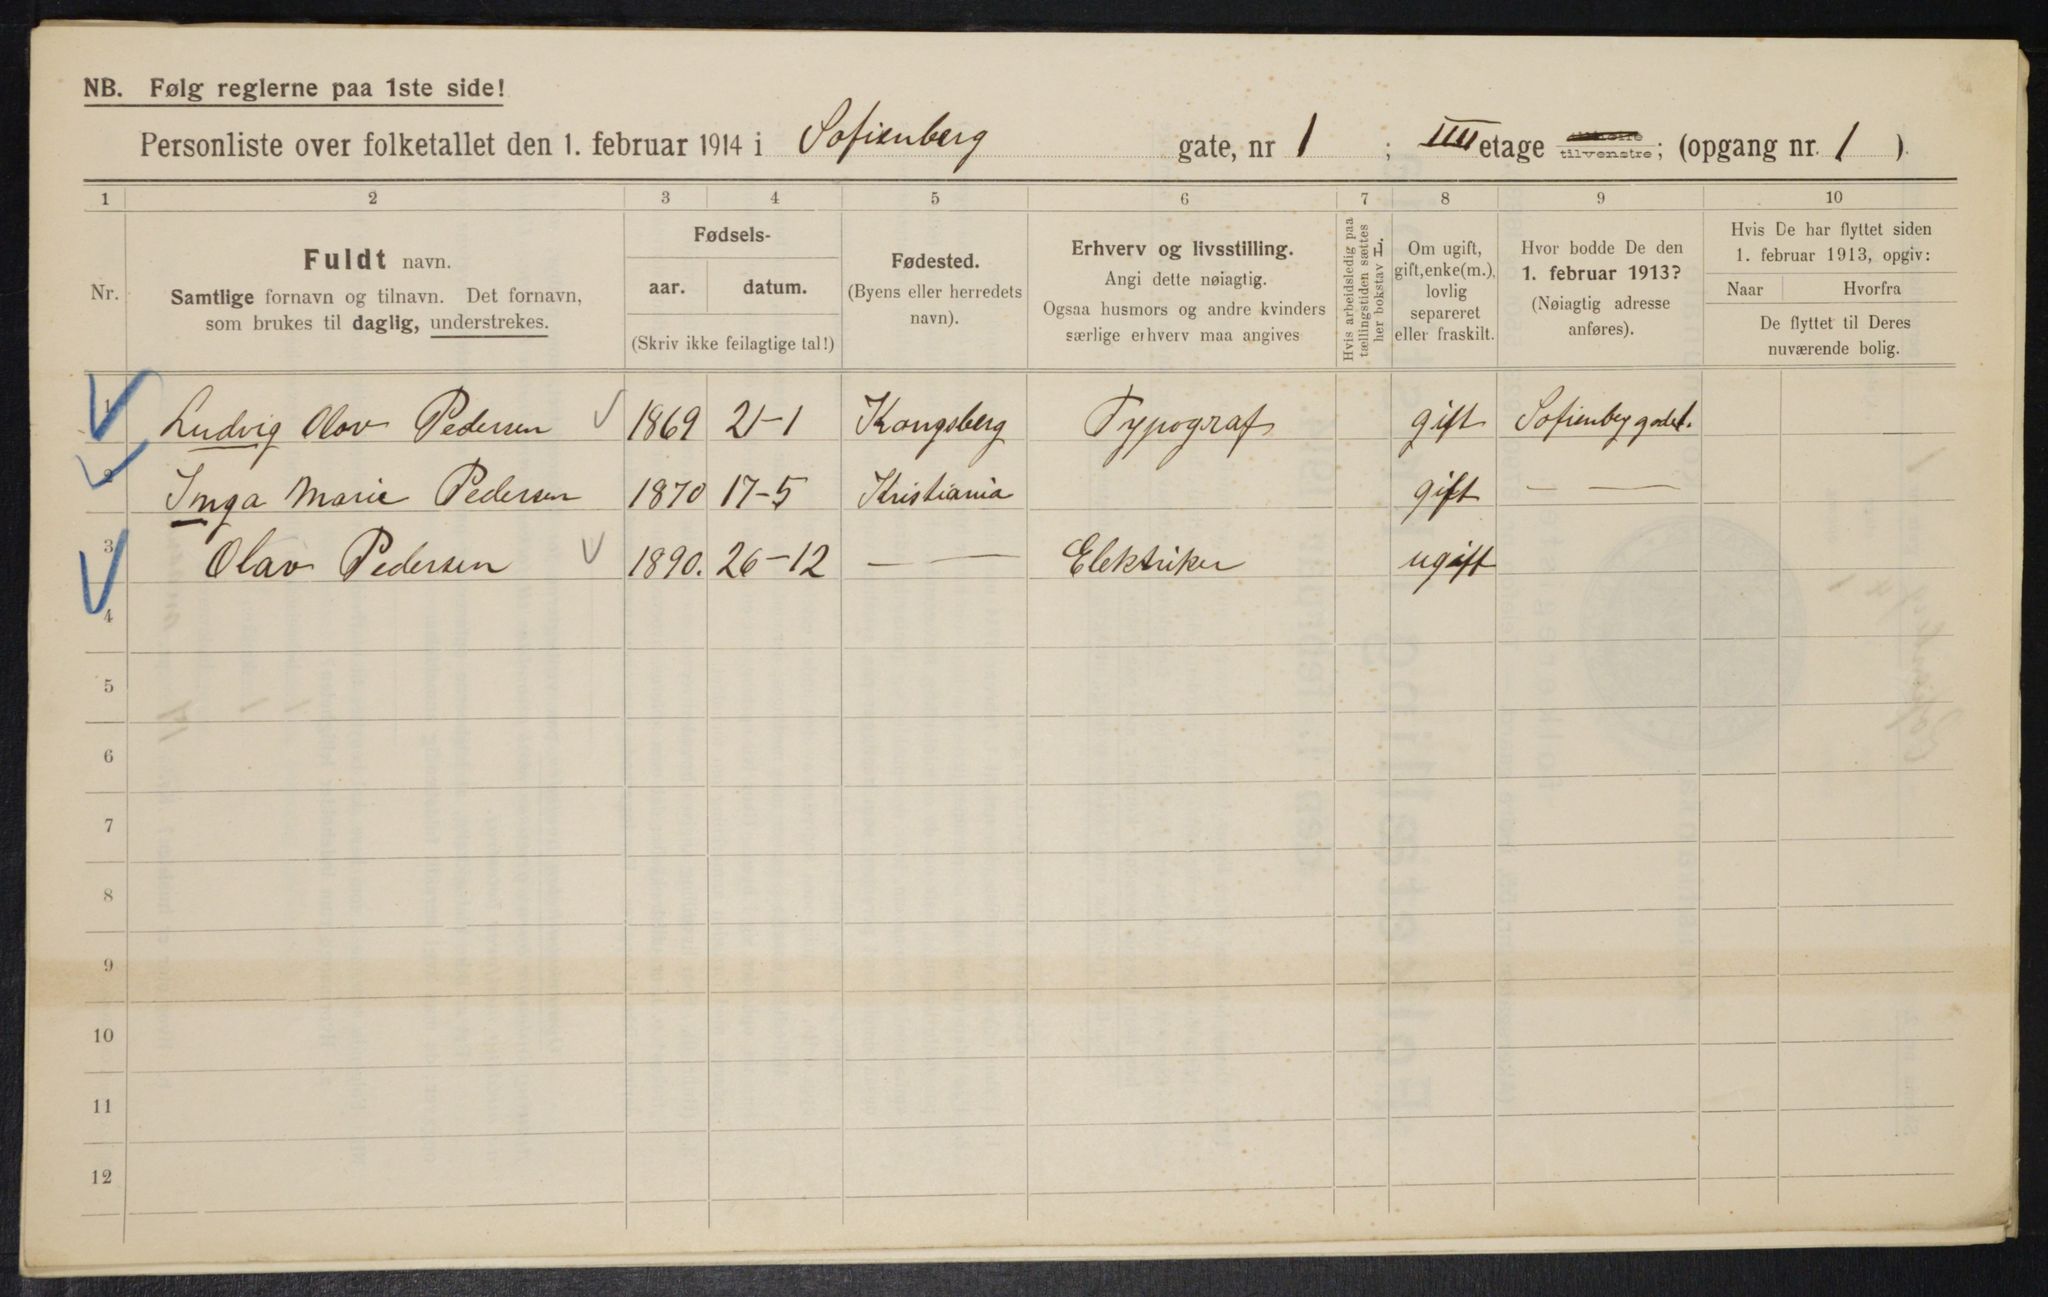 NB. Følg reglerne paa 1ste side!
Personliste over folketallet den 1. februar 1914 i Sofienberg gate, nr 1 ; IIII etage tilvenstre; (opgang nr. 1 ).
1 2 3 4 5 6 7 8 9 10
Nr.
Fuldt navn.
Samtlige fornavn og tilnavn. Det fornavn,
som brukes til daglig, understrekes.
Fødsels-
aar. datum.
(Skriv ikke feilagtige tal!)
Fødested.
(Byens eller herredets
navn).
Erhverv og livsstilling.
Angi dette nøiagtig.
Ogsaa husmors og andre kvinders
særlige erhverv maa angives
Hvis arbeidsledig paa
tællingstiden sættes
her bokstav H.
Om ugift,
gift, enke(m.),
lovlig
separeret
eller fraskilt.
Hvor bodde De den
1. februar 1913?
(Nøiagtig adresse
anføres).
Hvis De har flyttet siden
1. februar 1913, opgiv:
Naar Hvorfra
De flyttet til Deres
nuværende bolig.
1 Ludvig Olav Pedersen 1869 21-1 Kongsberg Typograf gift
2 Inga Marie Pedersen 1870 17-5 Kristiania gift — —
3 Olav Pedersen 1890. 26-12 — — Elektriker ugift
4
5
6
7
8
9
10
11
12